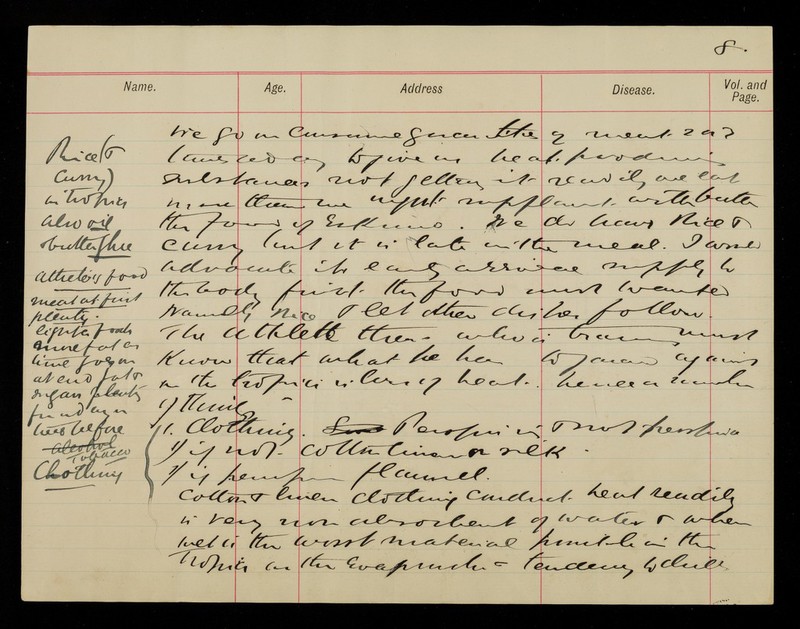 8.
Name. Age. Address Disease. Vol. and Page.
Rice &
Curry)
in tropics
also oil
butter ghee
athletes food
meat at first
plenty.
lighter foods
more fat as
time goes on
at end fat &
sugars plenty
alcohol
Tobacco
Clothing
We go on consuming quantities of meat
to give us heat producing
substances not getting it readily we eat
more than we
the food of Eskimo. We do have Rice &
Curry but it is late in the meal. I would
advocate its early arrival supply to
the body first the food most wanted
Namely Rice & let other dishes follow.
The athlete then who is training must
Know that what he has to guard against
in the tropics is loss of heat. hence a number
of things -
1. Clothing. Perspiring & not perspiring
If not. cotton linen or silk.
If flannel.
Cotton & linen clothing conduct heat readily
is very non absorbent of water & when
wet is the worst material possible in the
Tropics as the Evaporation tendency to chill